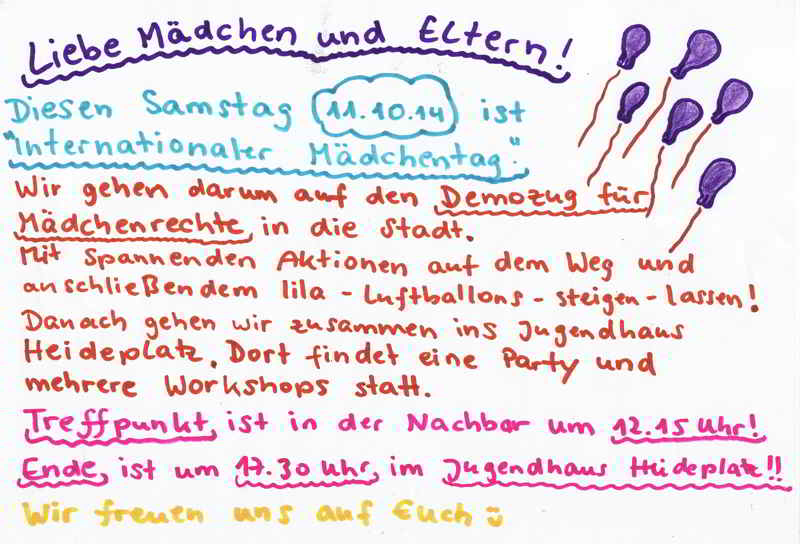 Liebe Mädchen und Eltern!
Diesen Samstag 11.10.14 ist
"Internationaler Mädchentag".
Wir gehen darum auf den Demozug für
Mädchenrechte in die Stadt.
Mit spannenden Aktionen auf dem Weg und
anschließendem lila - Luftballons - steigen - lassen!
Danach gehen wir zusammen ins Jugendhaus
Heideplatz. Dort findet eine Party und
mehrere Workshops statt.
Treffpunkt ist in der Nachbar um 12.15 Uhr!
Ende ist um 17.30 Uhr, im Jugendhaus Heideplatz!!
Wir freuen uns auf Euch